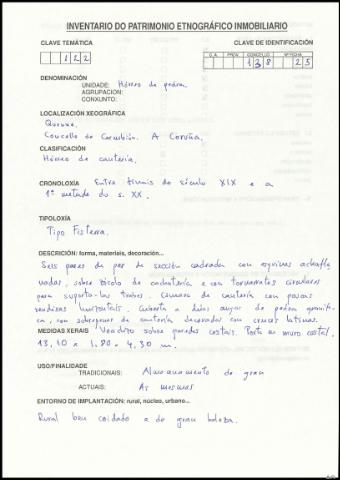 INVENTARIO DO PATRIMONIO ETNOGRÁFICO INMOBILIARIO
CLAVE TEMÁTICA
CLAVE DE IDENTIFICACIÓN
C.A. PROV. CONCELLO Nº FICHA
1 2 2
1 3 8 2 5
DENOMINACIÓN
UNIDADE: Hórreo de pedra
AGRUPACION:
CONXUNTO:
LOCALIZACIÓN XEOGRÁFICA
Concello de Corcubión. A Coruña.
CLASIFICACIÓN
Hórreo de cantería.
CRONOLOXÍA Entre finais do século XIX e a
1ª metade do s. XX.
TIPOLOXÍA
Tipo Fisterra.
DESCRICIÓN: forma, materiais, decoración...
Seis pares de pés de sección cadrada con esquinas achafla
nadas, sobre zócolo de cachotería e con tornarratos circulares
para soportalos trabes. Cámara de cantería con
fendas horizontais. Cuberta a dúas augas de pedra
de cantería decorados con cruces latinas.
MEDIDAS XERAIS Van duto sobre paredes costais. Porta no muro costal.
13,10 x 1,90 x 4,30 m.
USO/FINALIDADE
TRADICIONAIS: Almacenamento do grau
ACTUAIS: As mesmas
ENTORNO DE IMPLANTACIÓN: rural, núcleo, urbano...
Rural ben coidado e de gran beleza.